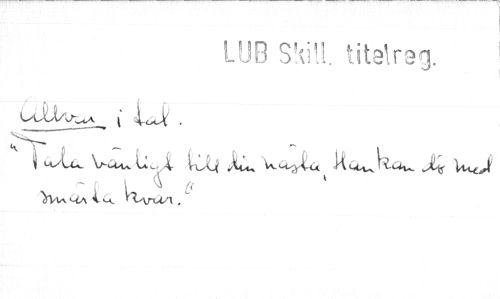 LUB Skill. titelreg.
Allvar i tal.
"Tala vänligt till din nästa, Han kan dö med
smärta kvar."